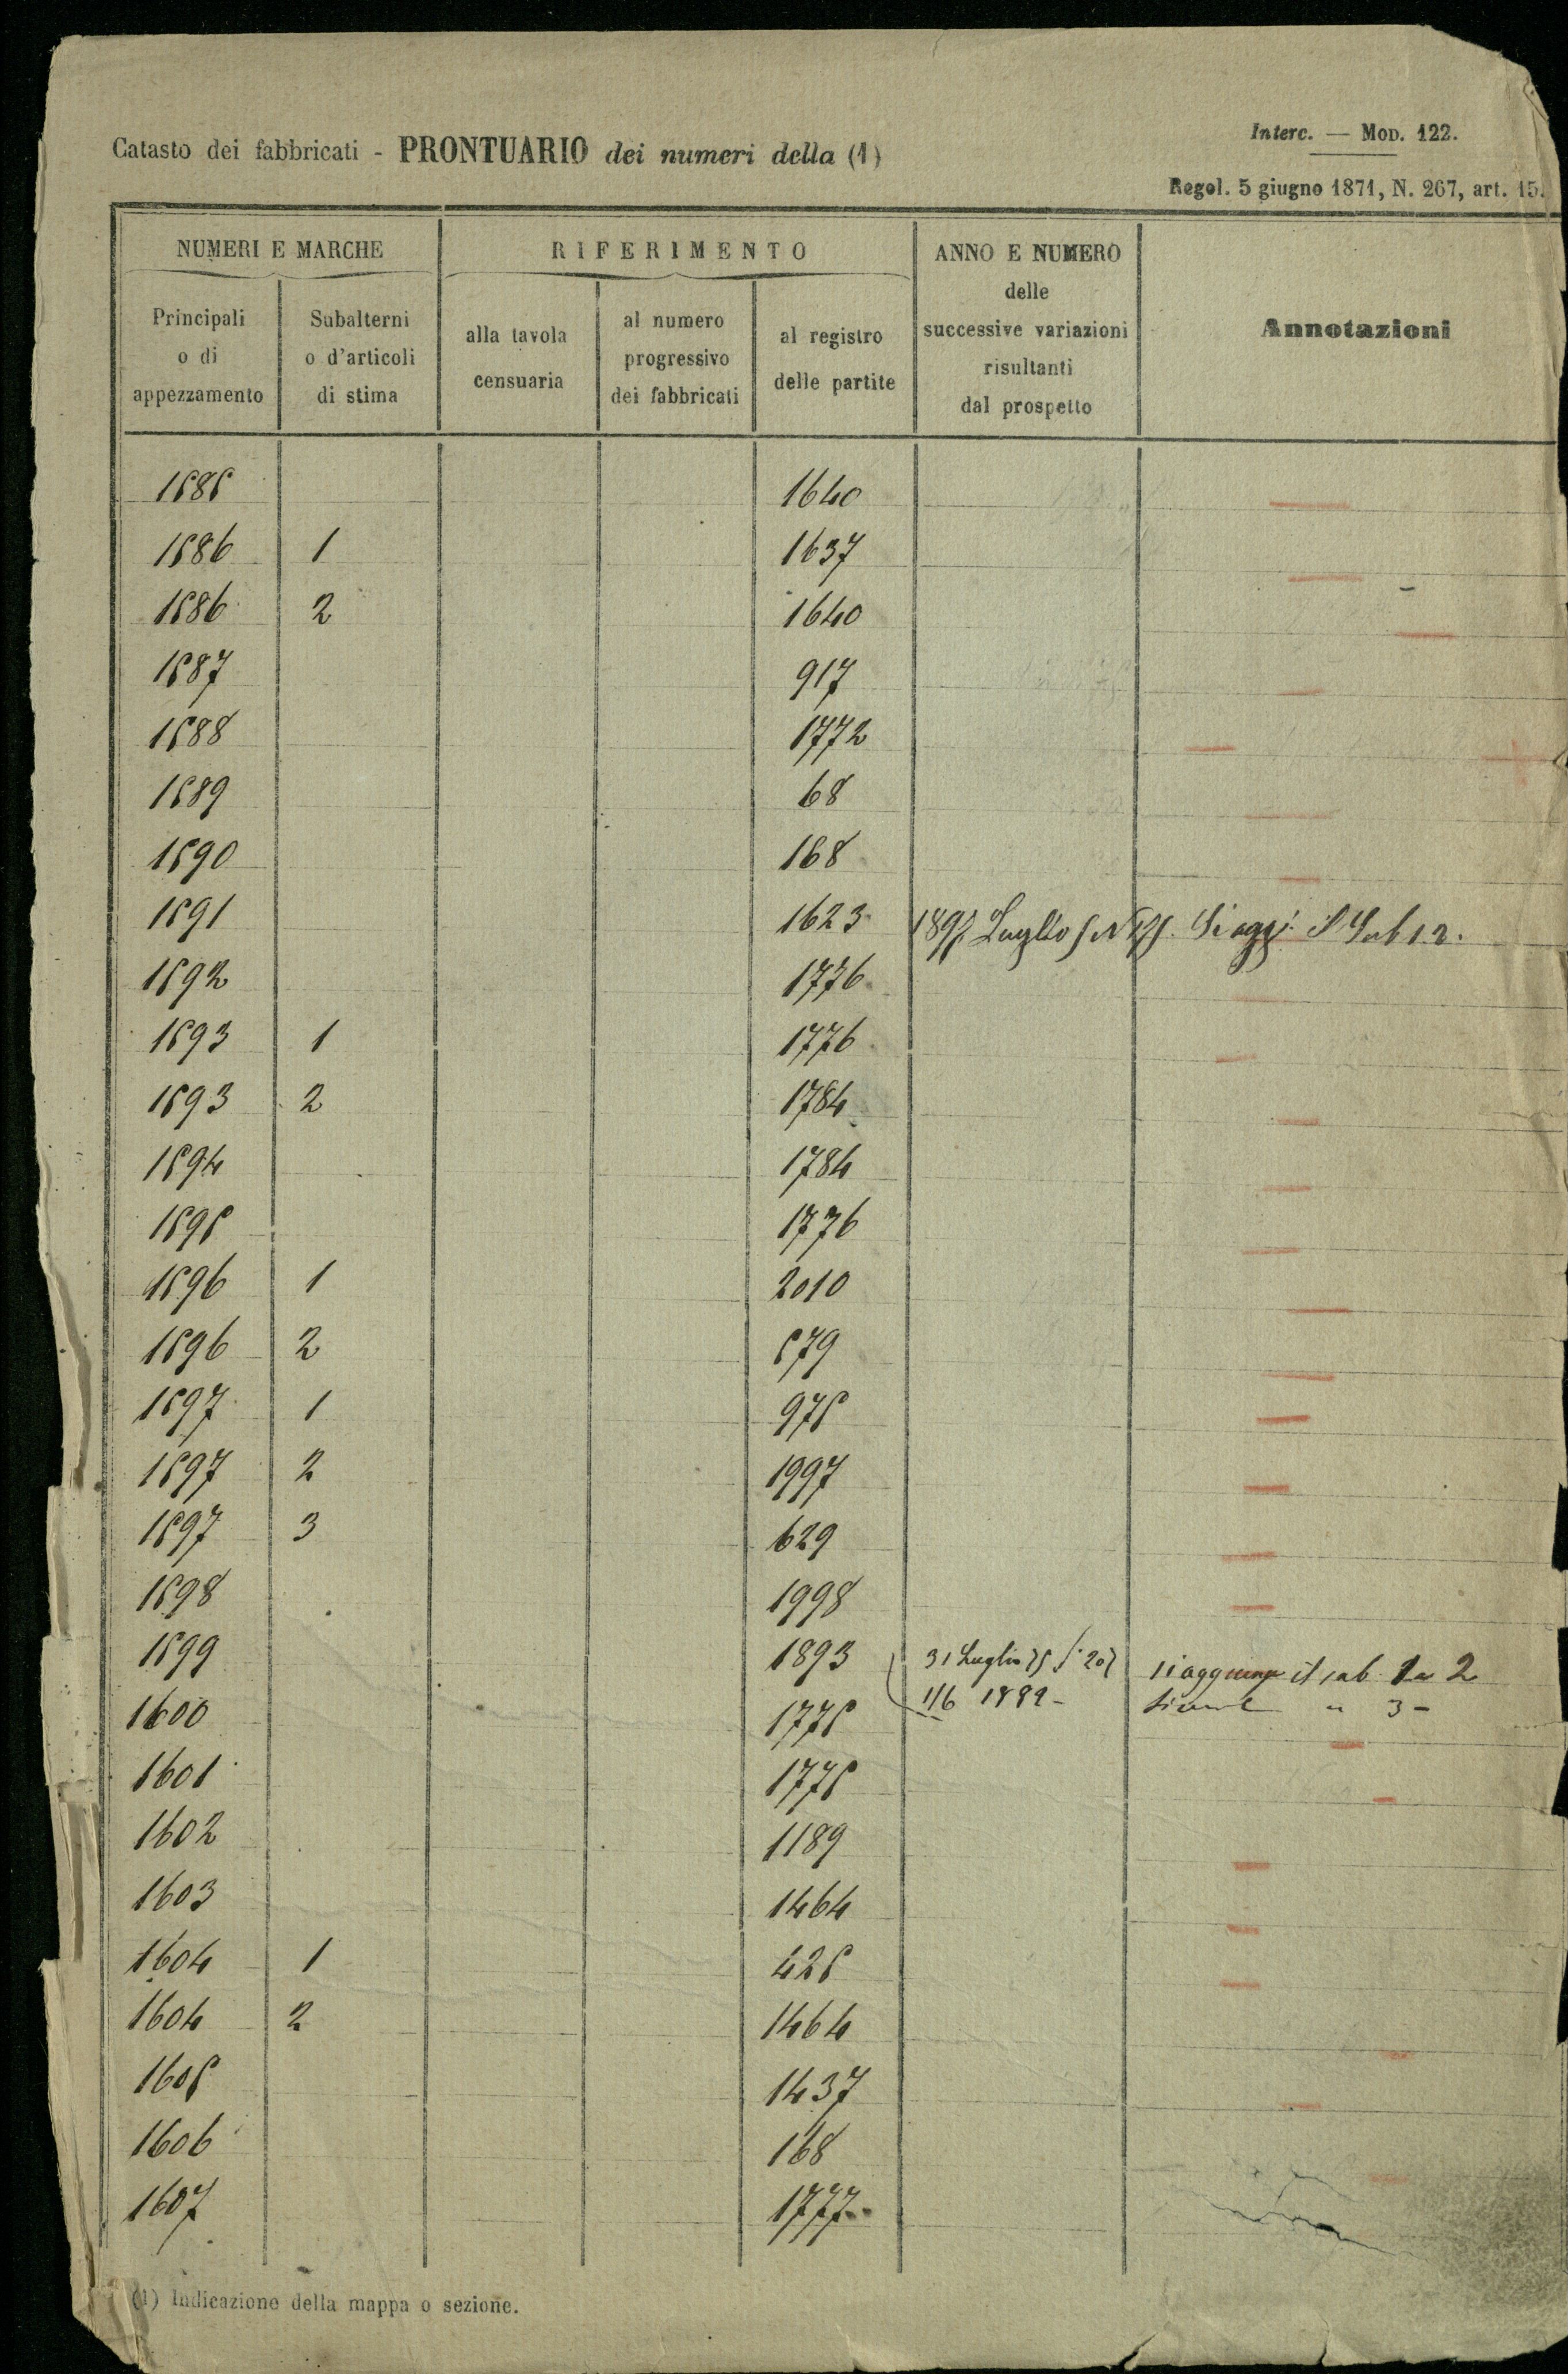 Catasto dei fabbricati - PRONTUARIO dei numeri della (1)
Interc. — Mod. 122.
Regol. 5 giugno 1871, N. 267, art. 15.
NUMERI E MARCHE
RIFERIMENTO
ANNO E NUMERO delle successive variazioni risultanti dal prospetto
Annotazioni
Principali o di appezzamento
Subalterni o d'articoli di stima
alla tavola censuaria
al numero progressivo dei fabbricati
al registro delle partite
1585 1640
1586 1 1637
1586 2 1640
1587 917
1588 1772
1589 68
1590 168
1591 1623 Luglio Si agg. il Sub 1.2.
1592 1776
1593 1 1776
1593 2 1784
1594 1784
1595 1776
1596 1 2010
1596 2 579
1597 1 975
1597 2 1997
1597 3 629
1598 1998
1599 1893 31 Luglio 75 207 si aggiunge il sub 1 a 2
1600 1775 1/6 1882 - " 3 -
1601 1775
1602 1189
1603 1464
1604 1 425
1604 2 1464
1605 1437
1606 168
1607 1777
(1) Indicazione della mappa o sezione.